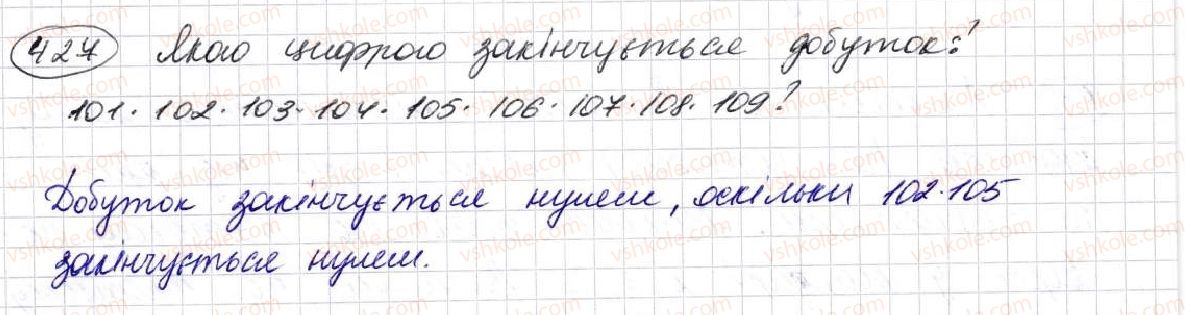 427 Якою цифрою закінчується добуток:?
101 · 102 · 103 · 104 · 105 · 106 · 107 · 108 · 109?
Добуток закінчується нулем, оскільки 102·105
закінчується нулем.